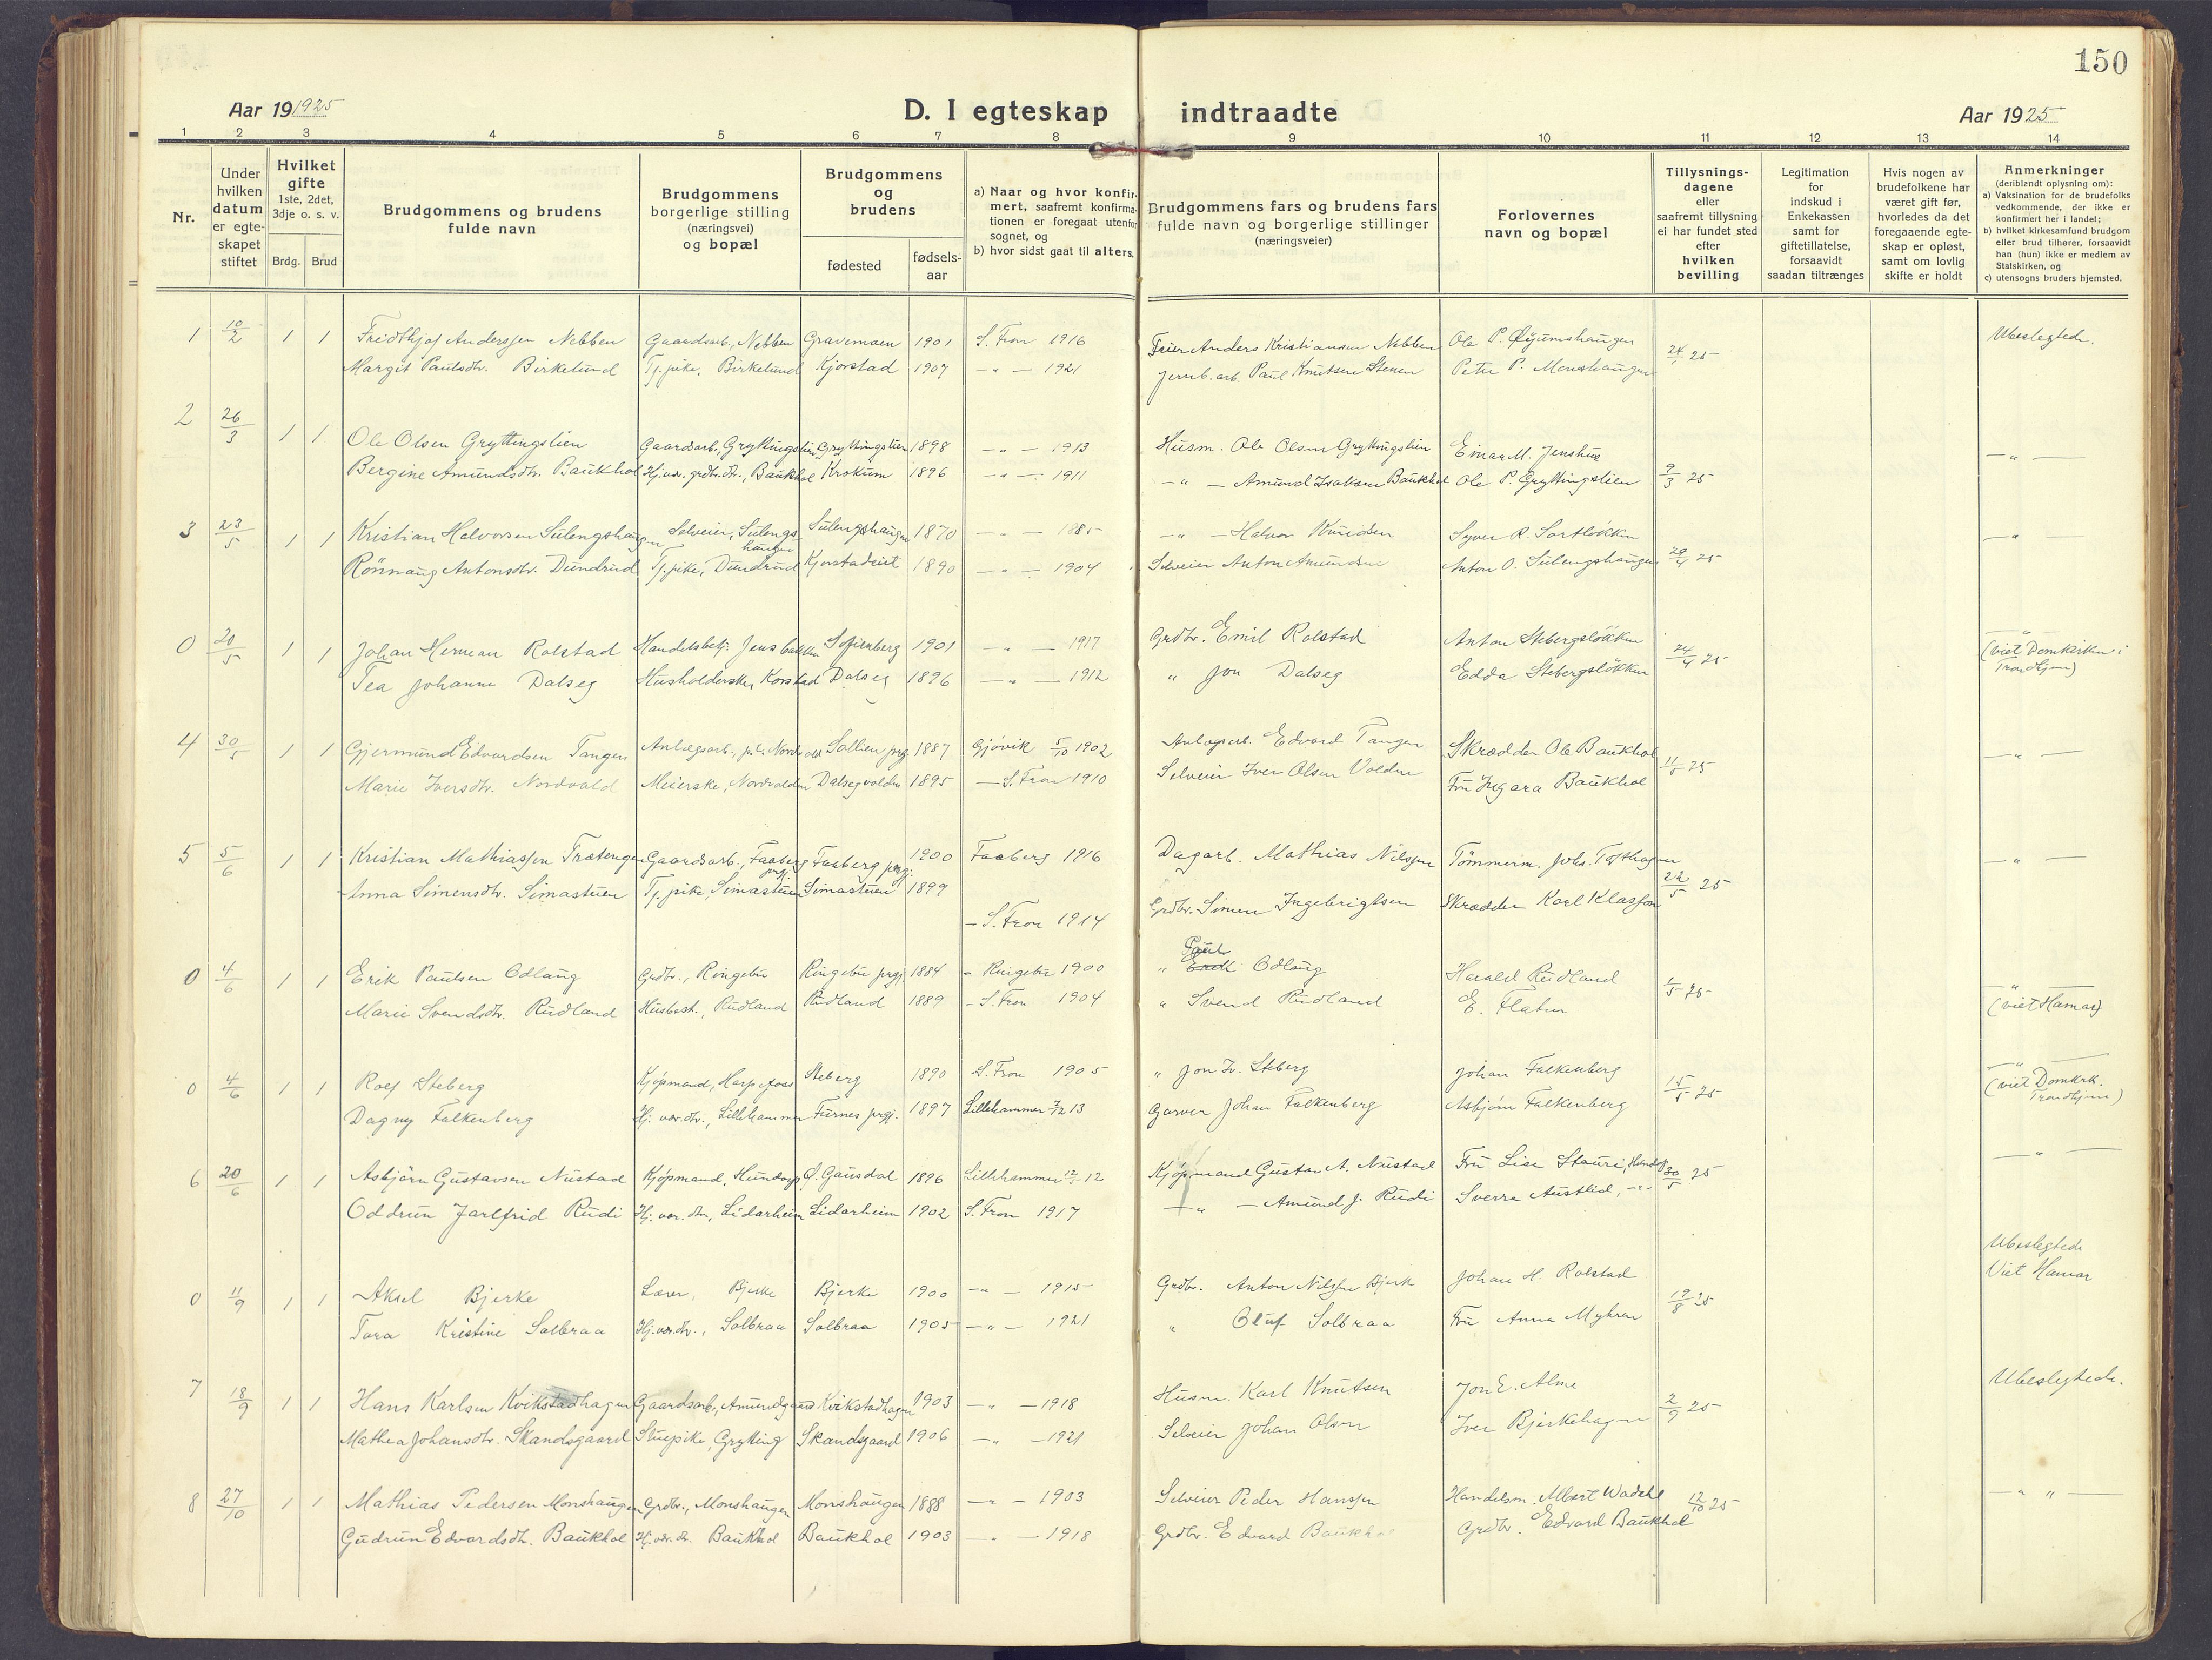 150
Aar 19 1925
D. I egteskap indtraadte
Aar 1925
1 2 3 4 5 6 7 8 9 10 11 12 13 14
Nr.
Under hvilken datum er egte- skapet stiftet
Hvilket gifte 1ste, 2det, 3dje o. s. v.
Brdg. Brud
Brudgommens og brudens fulde navn
Brudgommens borgerlige stilling (næringsvei) og bopæl
Brudgommens og brudens
fødested
fødsels- aar
a) Naar og hvor konfir- mert, saafremt konfirma- tionen er foregaat utenfor sognet, og
b) hvor sidst gaat til alters.
Brudgommens fars og brudens fars fulde navn og borgerlige stillinger (næringsveier)
Forlovernes navn og bopæl
Tillysnings- dagene eller saafremt tillysning ei har fundet sted efter hvilken bevilling
Legitimation for indskud i Enkekassen samt for giftetillatelse, forsaavidt saadan tiltrænges
Hvis nogen av brudefolkene har været gift før, hvorledes da det foregaaende egte- skap er opløst, samt om lovlig skifte er holdt
Anmerkninger (deriblandt oplysning om):
a) Vaksination for de brudefolks vedkommende, der ikke er konfirmert her i landet;
b) hvilket kirkesamfund brudgom eller brud tilhører, forsaavidt han (hun) ikke er medlem av Statskirken, og
c) utensogns bruders hjemsted.
1 10/2 1 1 Fridthjof Anderssen Nebben Gaardsarb., Nebben Gravemoen 1901 S. Fron 1916 Feier Anders Kristiansen Nebben Ole P. Øyumshaugen 24/1 25 Ubeslegtede.
Margit Paulsdtr. Birkelund Tj. pike, Birkelund Kjorstad 1907 -"- 1921 Jernb. arb. Paul Knutsen Stenen Peter P. Monshaugen
2 26/3 1 1 Ole Olsen Gryttingslien Gaardsarb., Gryttingslien Gryttingslien 1898 -"- 1913 Husm. Ole Olsen Gryttingslien Einar M. Jenshus -"-
Bergine Amundsdtr. Baukhol Hj. vær. grdbr. dtr., Baukhol Krokum 1896 -"- 1911 -"- Amund Isaksen Baukhol Ole P. Gryttingslien 9/3 25
3 23/5 1 1 Kristian Halvorsen Sulengshaugen Selveier, Sulengshaugen Sulengshaugen 1870 -"- 1885 -"- Halvor Knudsen Syver R. Sortløkken -"-
Rönnaug Antonsdtr. Dundrud Tj. pike, Dundrud Kjorstadeiet 1890 -"- 1904 Selveier Anton Amundsen Anton O. Sulengshaugen 29/4 25
0 20/5 1 1 Johan Herman Rolstad Handelsbetj. Jensbakken Sofienberg 1901 -"- 1917 Grdbr. Emil Rolstad Anton Stebergsløkken 24/4 25 -"- (viet Domkirken i Trondhjem)
Tea Johanne Dalseg Husholderske, Korstad Dalseg 1896 -"- 1912 " Jon Dalseg Edda Stebergsløkken
4 30/5 1 1 Gjermund Edvardsen Tangen Anlægsarb., Sollien prgj. 1887 Gjøvik 5/10 1902 Anlægsarb. Edvard Tangen Skrædder Ole Baukhol 11/5 25 -"-
Marie Iversdtr. Nordvold Meierske, Nordvolden Dalsegvolden 1895 - S. Fron 1910 Selveier Iver Olsen Volden Fru Ingara Baukhol
5 5/6 1 1 Kristian Mathiassen Trætengen Gaardsarb., Faaberg prgj. Faaberg prgj. 1900 Faaberg 1916 Dagarb. Mathias Nilssen Tømmerm. Johs. Tofthagen -"-
Anna Simensdtr. Simastuen Tj. pike, Simastuen Simastuen 1899 - S. Fron 1914 Grdbr. Simen Ingebrigtsen Skrædder Karl Klassen 22/5 25
0 4/6 1 1 Erik Paulsen Odlaug Grdbr., Ringebu Ringebu prgj. 1884 - Ringebu 1900 " Paul Odlaug Harald Rudland 1/5 25 -"- (viet Hamar)
Marie Svendsdtr. Rudland Husbest., Rudland Rudland 1889 - S. Fron 1904 " Svend Rudland E. Flaten
0 4/6 1 1 Rolf Steberg Kjøpmand, Harpefoss Steberg 1890 S. Fron 1905 " Jon Iv. Steberg Johan Falkenberg 15/5 25 -"- (viet Domkrk. Trondhjem)
Dagny Falkenberg Hj. vær. dtr., Lillehammer Furnes prgj. 1897 Lillehammer 7/12 13 Garver Johan Falkenberg Asbjørn Falkenberg
6 20/6 1 1 Asbjörn Gustavsen Nustad Kjøpmand, Hundorp Ø. Gausdal 1896 Lillehammer 12 Kjøpmand Gustav A. Nustad Fru Lise Stauri, Hundorp 30/5 25 -"-
Oddrun Jarlfrid Rudi Hj. vær. dtr., Lidarheim Lidarheim 1902 S. Fron 1917 -"- Amund J. Rudi Sverre Austlid, -"-
0 11/9 1 1 Aksel Bjerke Lærer, Bjerke Bjerke 1900 -"- 1915 Grdbr. Anton Nilssen Bjerk Johan H. Rolstad 19/8 25 Ubeslegtede Viet Hamar
Tora Kristine Solbraa Hj. vær. dtr., Solbraa Solbraa 1905 -"- 1921 " Oluf Solbraa Fru Anna Myhren
7 18/9 1 1 Hans Karlsen Kvikstadhagen Gaardsarb., Amundgaard Kvikstadhagen 1903 -"- 1918 Husm. Karl Knutsen Jon E. Alme 2/9 25 Ubeslegtede.
Mathea Johansdtr. Skandsgaard Stuepike, Grytting Skandsgaard 1906 -"- 1921 Selveier Johan Olsen Iver Bjerkehagen
8 27/10 1 1 Mathias Pedersen Monshaugen Grdbr., Monshaugen Monshaugen 1888 -"- 1903 Selveier Peder Hanssen Handelsm. Albert Wadahl 12/10 25 -"-
Gudrun Edvardsdtr. Baukhol Hj. vær. dtr. Baukhol Baukhol 1903 -"- 1918 Grdbr. Edvard Baukhol Grdbr. Edvard Baukhol